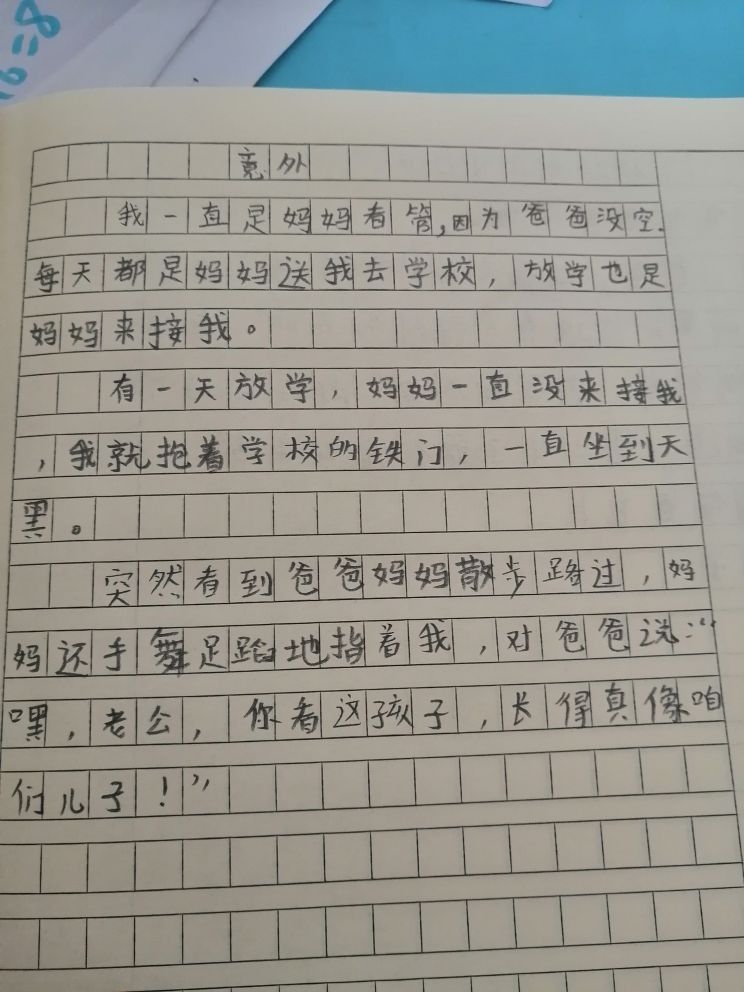 16=8
意外
我一直是妈妈看管,因为爸爸没空.
每天都是妈妈送我去学校，放学也是
妈妈来接我。
有一天放学，妈妈一直没来接我
，我就抱着学校的铁门，一直坐到天
黑。
突然看到爸爸妈妈散步路过，妈
妈还手舞足蹈地指着我，对爸爸说：“
嘿，老公，你看这孩子，长得真像咱
们儿子！”